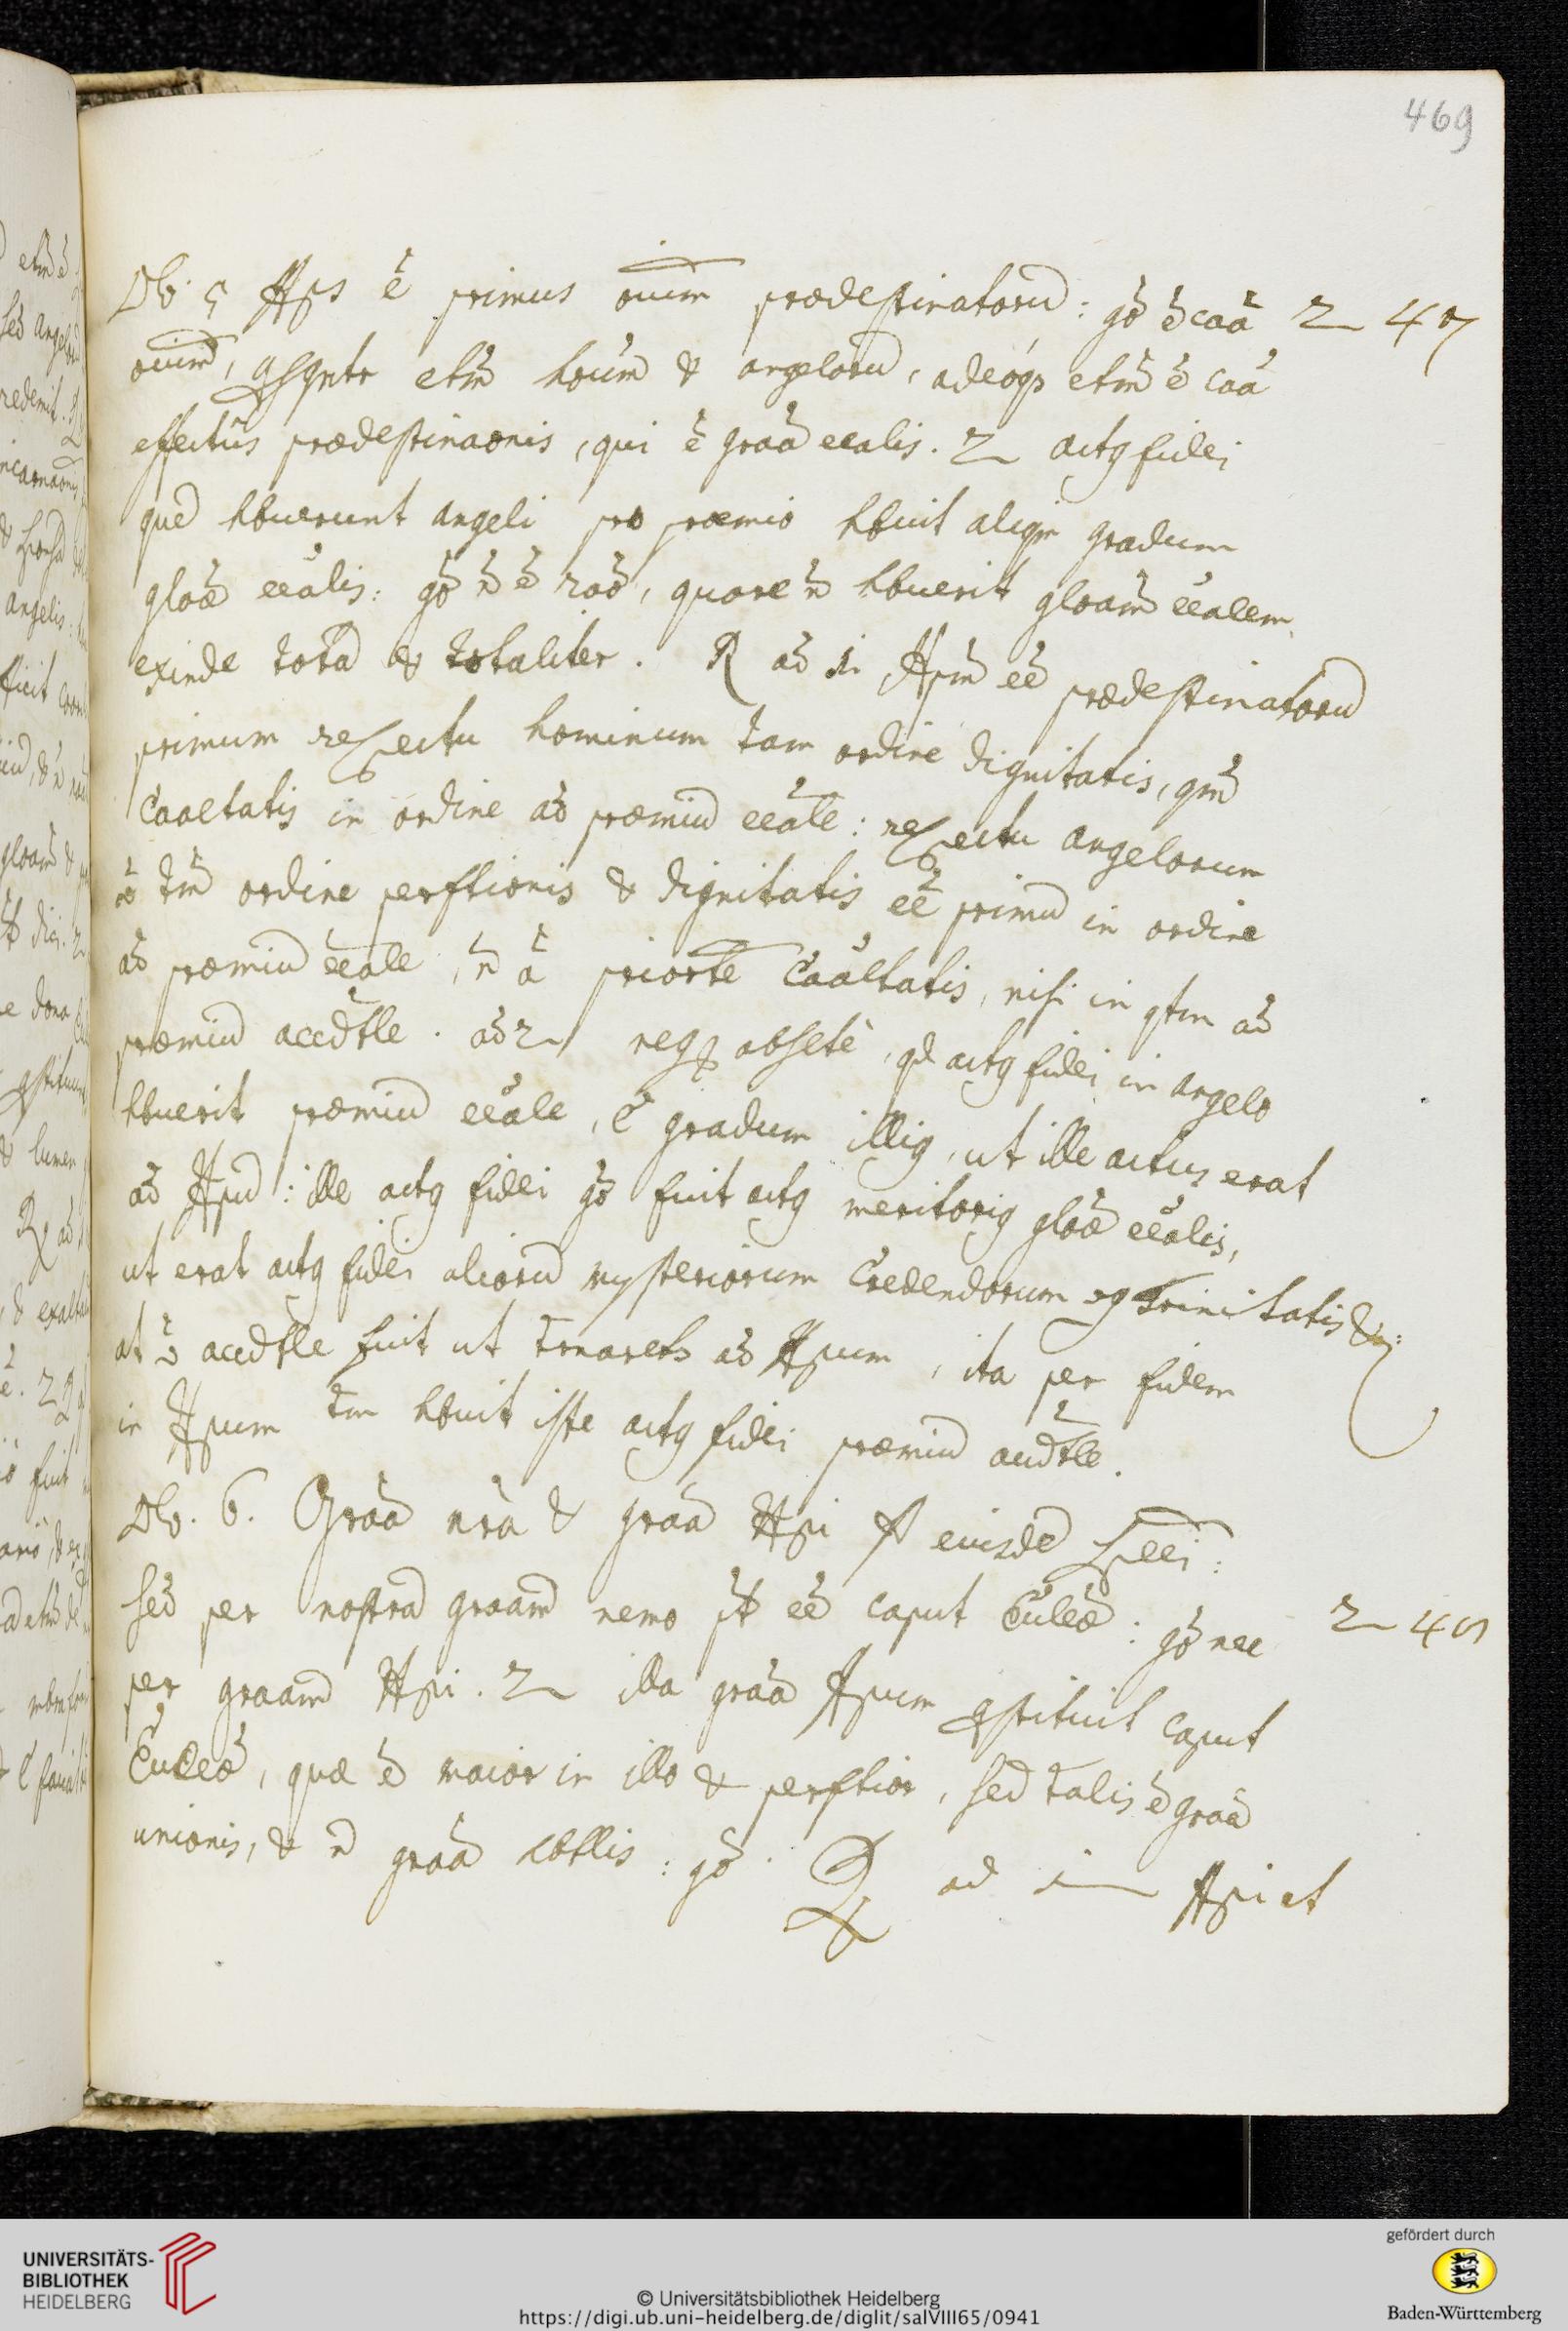 469
Ob. 5 Xps ẽ primus oium praedestinatorũ: gõ ẽ caã
2 47
oium, consqntr etm̃ hoium & angelorũ, adeóq; etm̃ ẽ caã
effectûs praedestinaonis, qui ẽ graã eealis. 2 actq fidei
quẽ hbuerunt angeli pro praemio hbuit aliqm gradum
gloae eealis: gõ ñ ẽ raõ, quare ñ hbuerit gloam̃ eealem
exinde totã & totaliter. R ad 1 Xpm̃ eẽ praedestinatorũ
primum respectu hominum tam ordine dignitatis, qm̃
caaltatis in ordine ad praemiũ eeale: respectu angelorum
tm̃ ordine perftionis & dignitatis eẽ primũ in ordine
ad praemiũ eeale, ñ ã priortẽ caaltatis, nisi in qtm ad
praemiũ accdtle. ad 2 neq; obstete, qd actq fidei in angelo
hbuerit praemiũ eeale, & gradum illiq, ut ille actus erat
ad Xpũ: ille actq fidei gõ fuit actq meritoriq gloae eealis,
ut erat actq fidei aliorũ mysteriorum credendorum vg Trinitatis &c:
at accdtle fuit ut trnarets ad Xpum, ita per fidem
in Xpum tm hbuit iste actq fidei praemiũ accdtle.
Ob. 6. Graã nrã & graã Xpi st eiusdẽ speei:
sed per nostrã graam̃ nemo pt eẽ caput Ecclae: gõ nec
2 48
per graam̃ Xpi. 2 illa graã Xpum constituit caput
Ecclae, quae ẽ maior in illo & perftior, sed talis ẽ graã
unionis, & ñ graã hbtlis: gõ. R ad 1 Xpi et
UNIVERSITÄTS-
BIBLIOTHEK
HEIDELBERG
© Universitätsbibliothek Heidelberg
https://digi.ub.uni-heidelberg.de/diglit/salVIII65/0941
gefördert durch
Baden-Württemberg